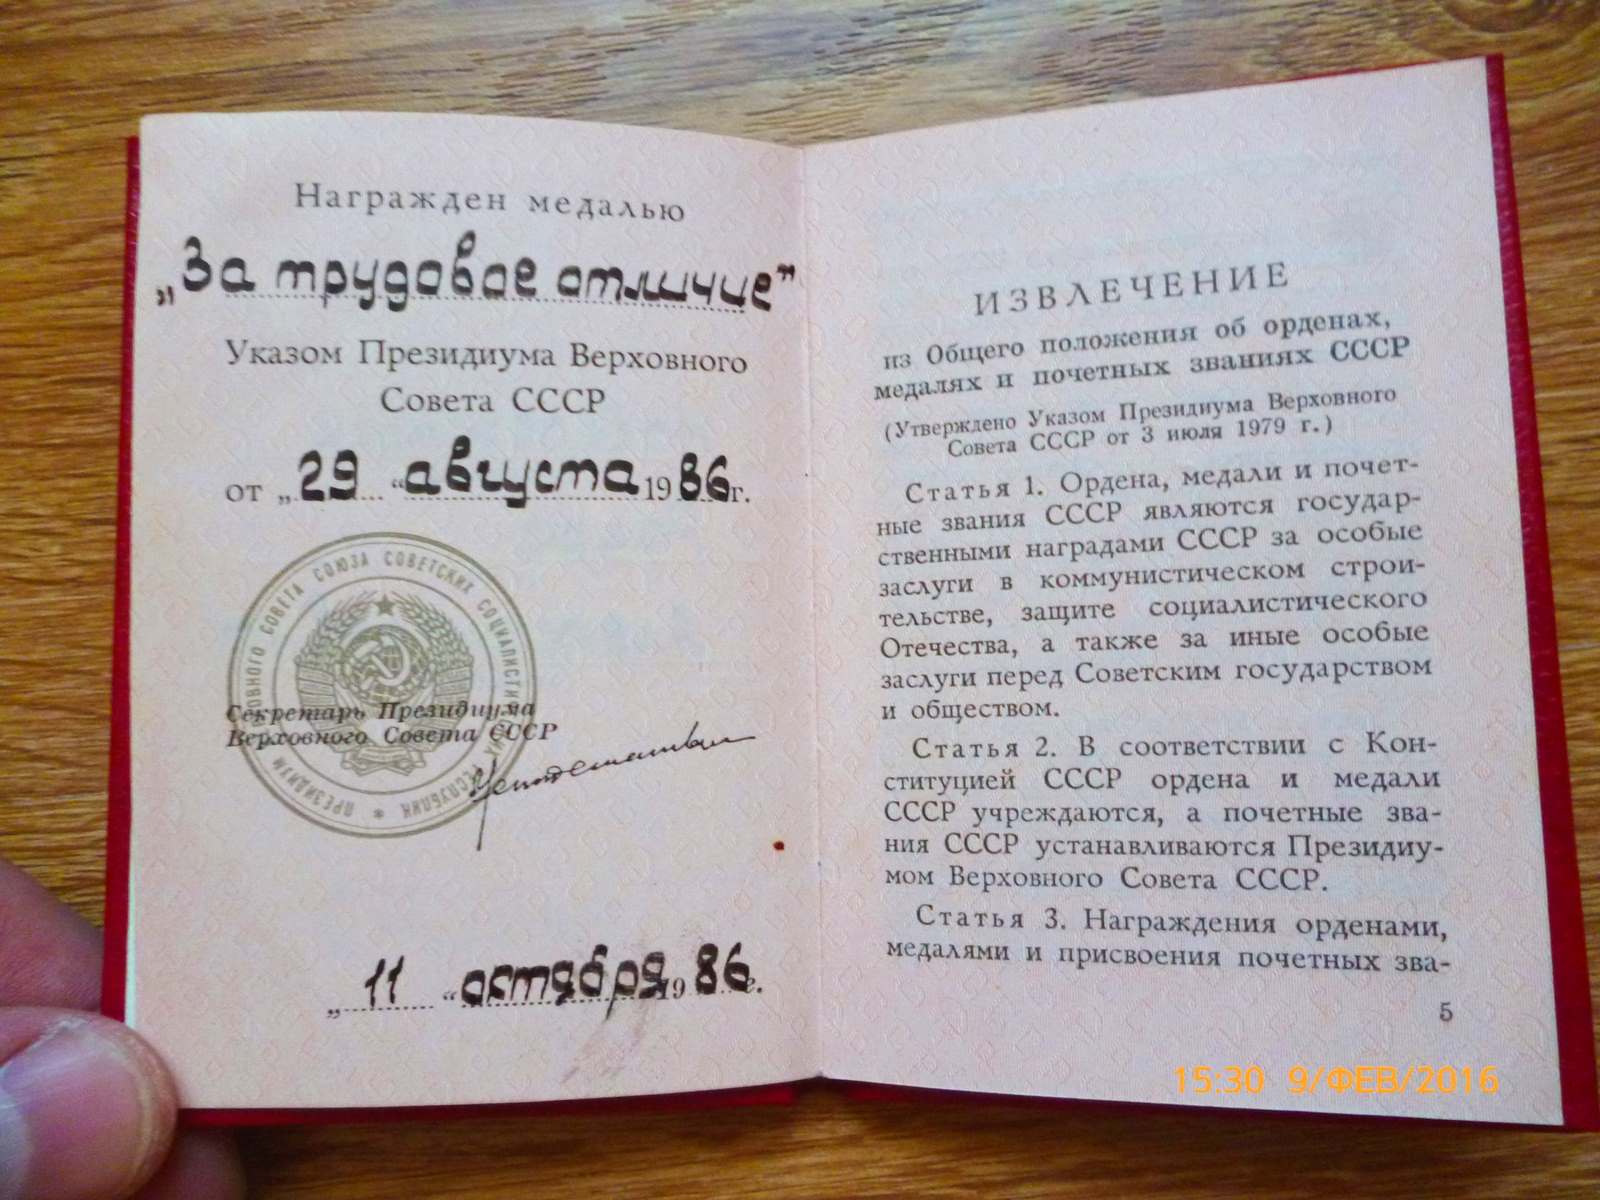 Награжден медалью
„За трудовое отличие”
Указом Президиума Верховного
Совета СССР
от „29“ августа 1986г.
ПРЕЗИДИУМ ВЕРХОВНОГО СОВЕТА СОЮЗА СОВЕТСКИХ СОЦИАЛИСТИЧЕСКИХ РЕСПУБЛИК *
Секретарь Президиума
Верховного Совета СССР
„11“ октября 1986г.
ИЗВЛЕЧЕНИЕ
из Общего положения об орденах,
медалях и почетных званиях СССР
(Утверждено Указом Президиума Верховного
Совета СССР от 3 июля 1979 г.)
Статья 1. Ордена, медали и почет-
ные звания СССР являются государ-
ственными наградами СССР за особые
заслуги в коммунистическом строи-
тельстве, защите социалистического
Отечества, а также за иные особые
заслуги перед Советским государством
и обществом.
Статья 2. В соответствии с Кон-
ституцией СССР ордена и медали
СССР учреждаются, а почетные зва-
ния СССР устанавливаются Президиу-
мом Верховного Совета СССР.
Статья 3. Награждения орденами,
медалями и присвоения почетных зва-
5
15:30 9/ФЕВ/2016